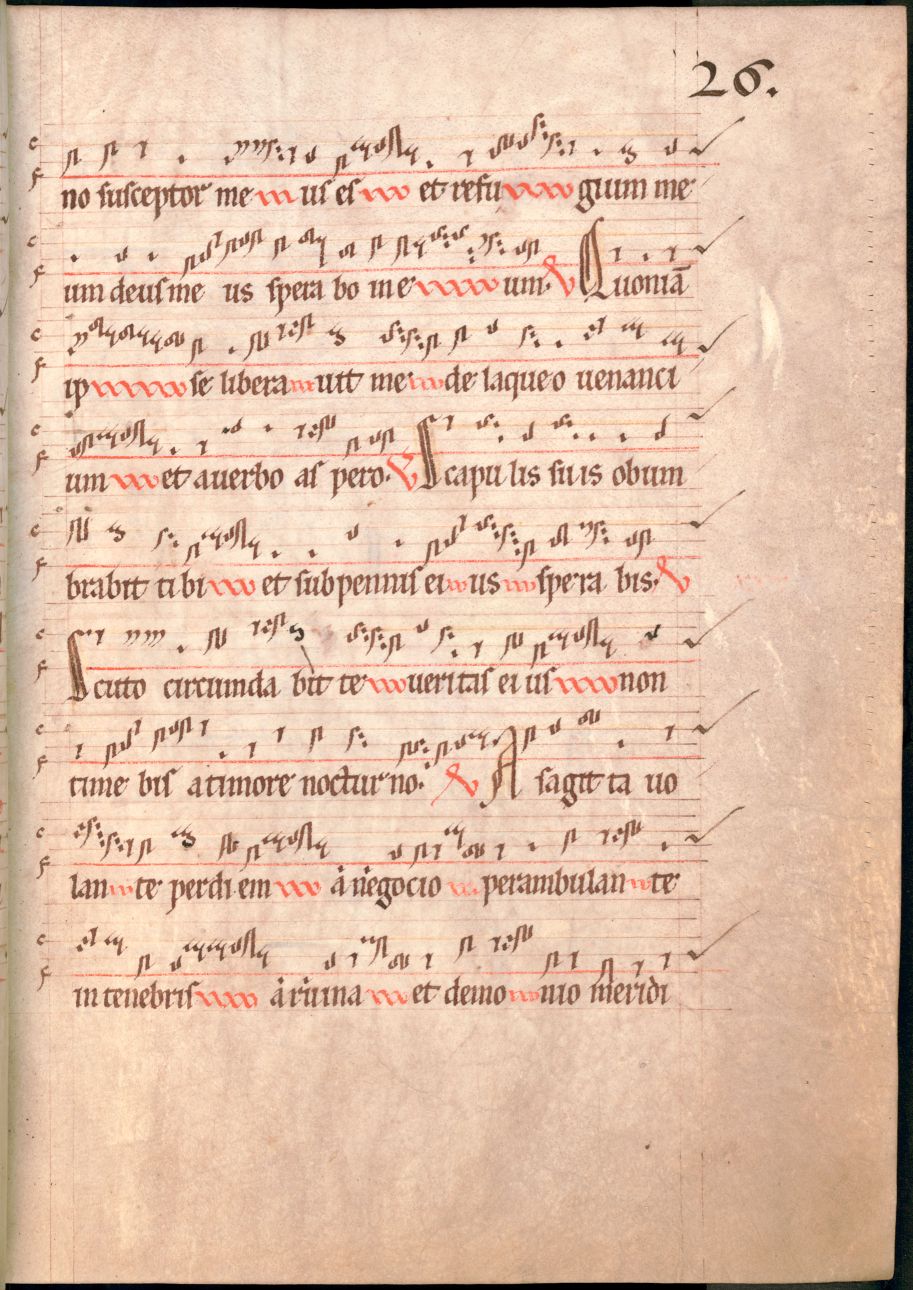 26.
no susceptor me us es et refu gium me
um deus me us spera bo in e um. V Quoniā
ip se libera uit me de laqueo uenanci
um et a uerbo as pero. V Scapu lis su is obum
brabit ti bi et sub pennis ei us spe ra bis. V
Scuto circumda bit te ueritas ei us non
time bis a timore noctur no. V A sagit ta uo
lan te perdi em á negocio perambulan te
in tenebris á ruina et demo nio meridi